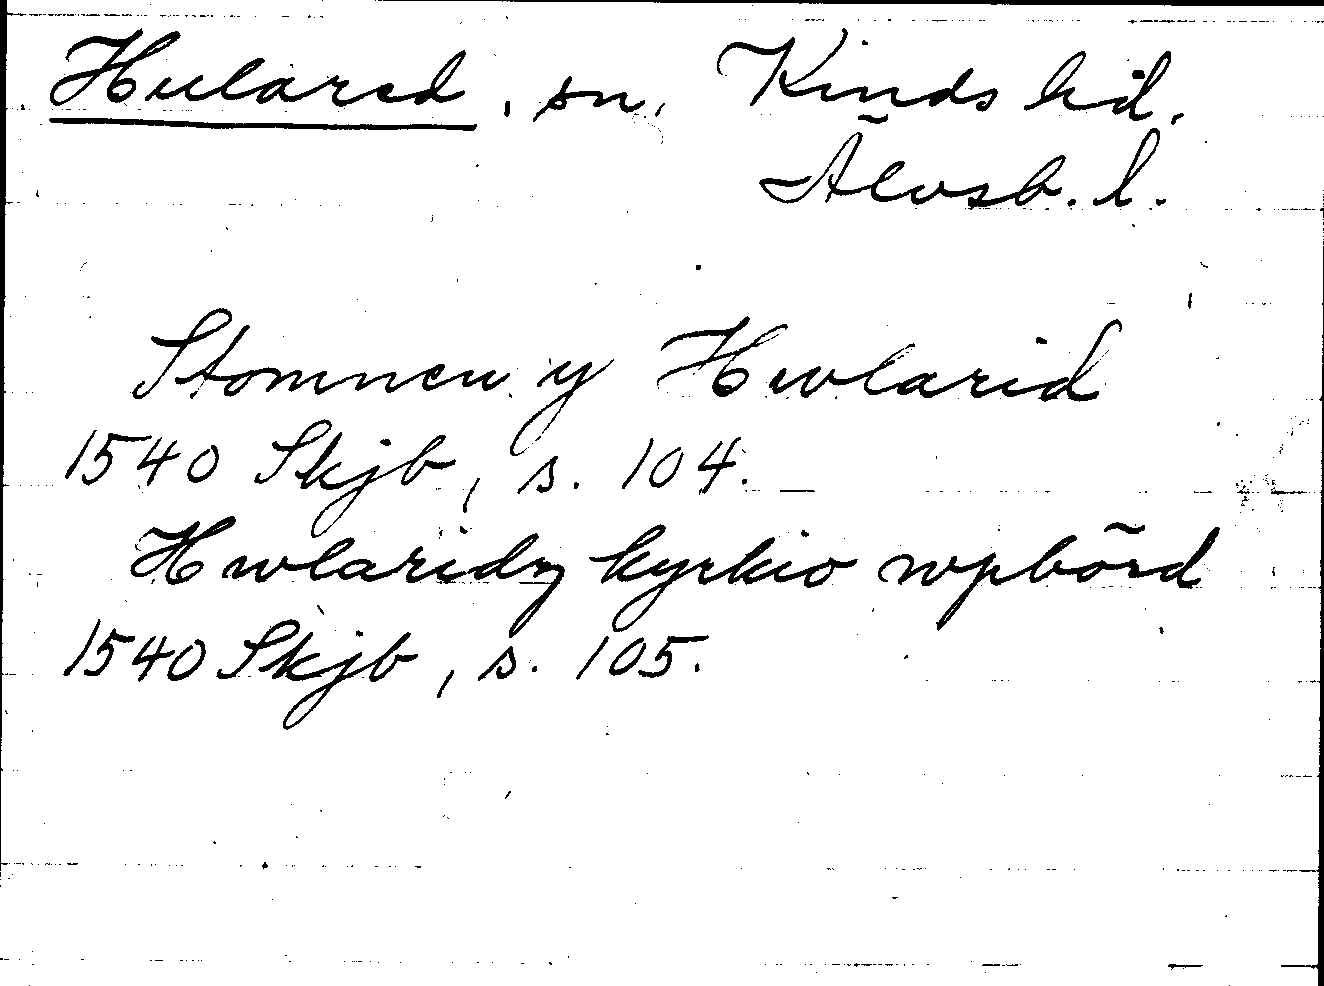 Hulared, sn, Kinds hd.
Älvsb. l.
Stomnen y Hwlarid
1540 Skjb, s. 104.
Hwlaridz kyrkio wpbörd
1540 Skjb, s. 105.